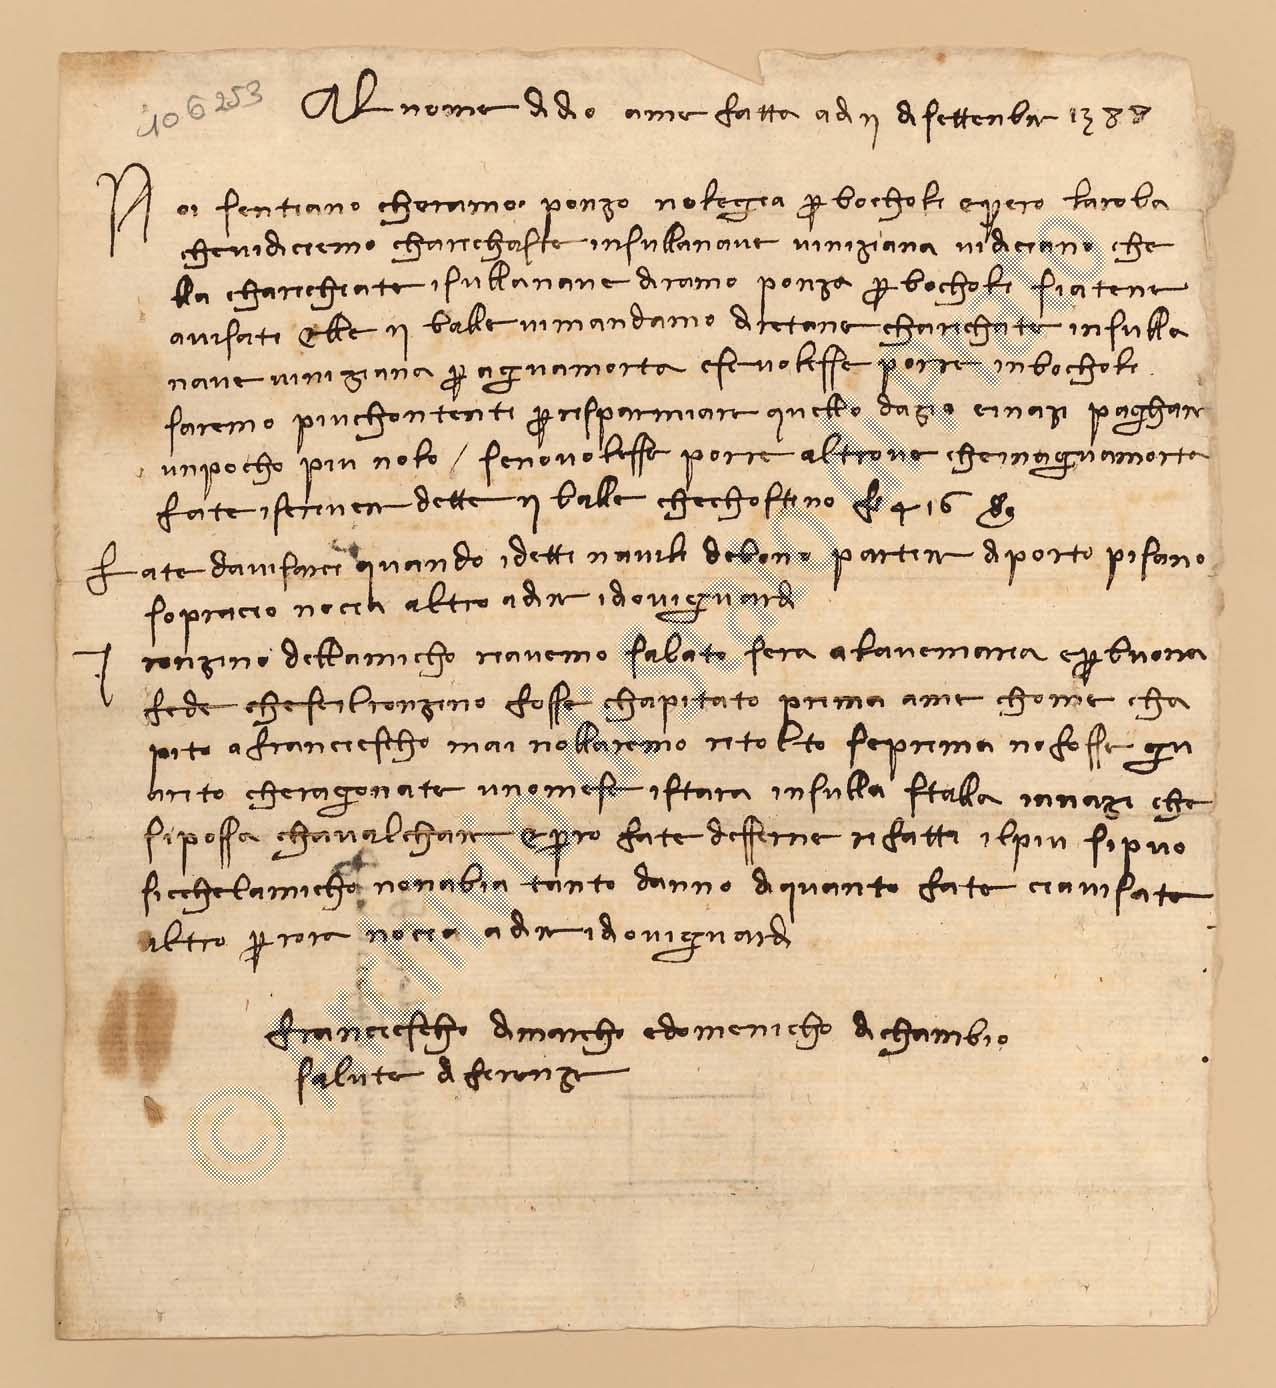 106253
Al nome di dio ame fatta adi 11 di settenbre 1388
Noi sentiano cheramo ponzo nolegia per bocholi epero laroba
chevidiciemo charichaste insullanave viniziana vi diciano che
lla charichiate isullanave di ramo ponzo per bocholi siatene
avisati elle 11 balle vimandamo diretane charichate insulla
nave viniziana per aguamorta esevolesse porre inbocholi
saremo piuchontenti per risparmiare quello dazio einazi paghare
unpocho piu nolo / senovolesse porre altrove cheinaguamorta
fate iscrivere dette 11 balle chechostino f 416
Fate davisarci quando idetti navili debono partire di porto pisano
sopracio nocia altro adire idoviguardi
I ronzino dellamicho riavemo sabato sera alavemaria eperbuona
fede cheseilronzino fosse chapitato prima ame chome cha
pito afranciescho mai nollaremo ritolto seprima nofosse gu
arito cheragonate unomese istara insulla stalla inazi che
siposa chavalchare epero fate desserne rifatti ilpiu sipuo
sicchelamicho nonabia tanto danno diquanto fate ciavisate
altro per rora nocia adire idoviguardi
franciescho dimarcho edomenicho dichambio
salute di firenze